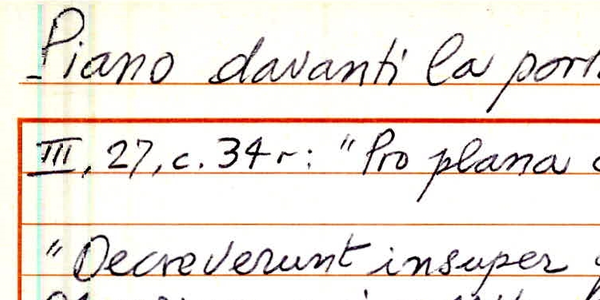 Piano davanti la
III, 27, c. 34 r: "Pro plana
"Decreverunt insuper